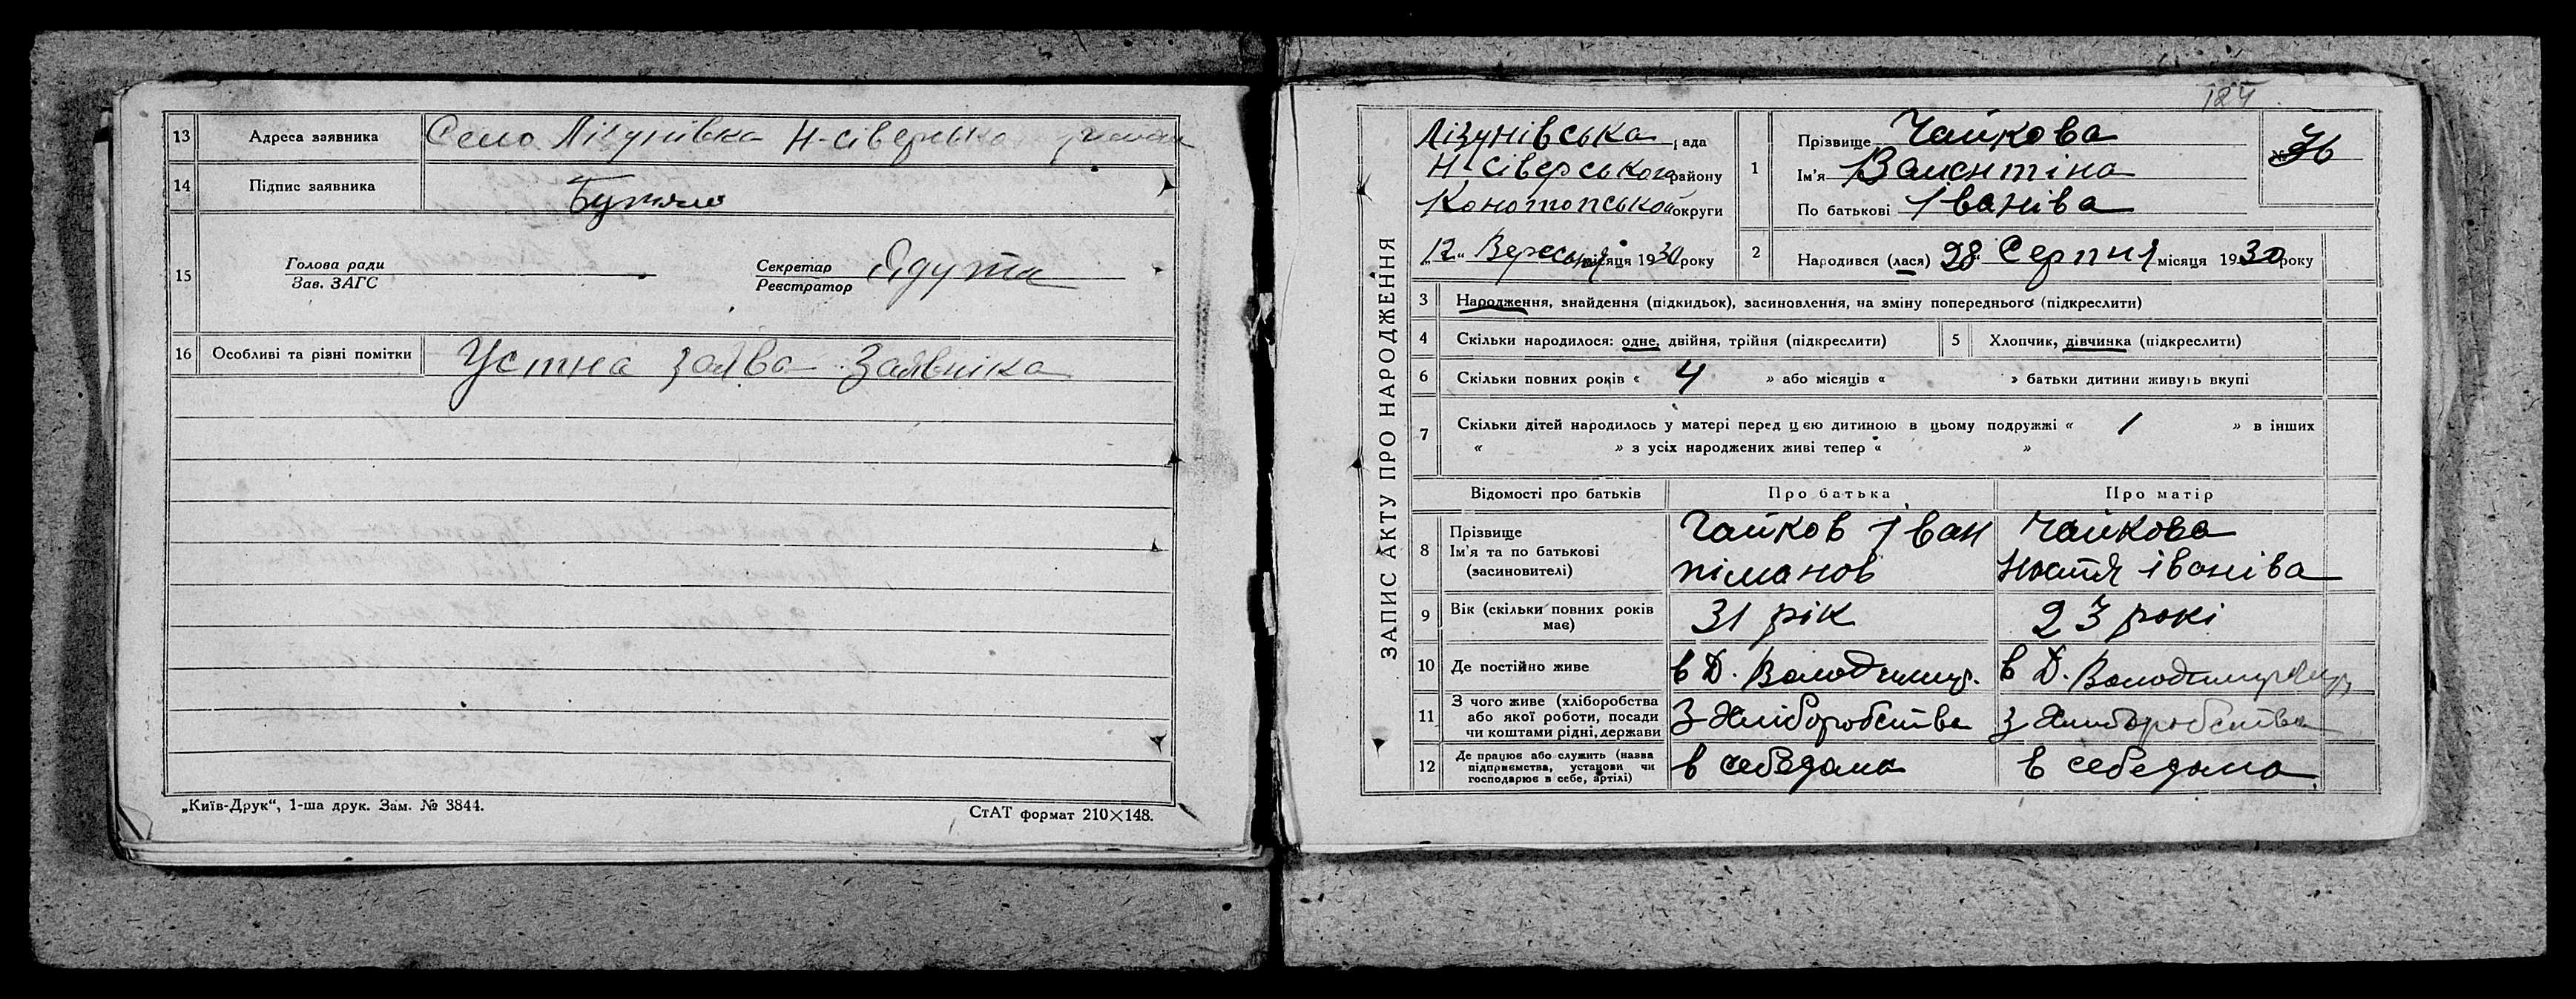 13 Адреса заявника Село Лізунівка Н-сіверсько
14 Підпис заявника
15 Голова ради
Зав. ЗАГС
Секретар
Реєстратор Ядута
16 Особливі та різні помітки Устна заява заявніка
„Київ-Друк“, 1-ша друк. Зам. № 3844.
СтАТ формат 210×148.
124
ЗАПИС АКТУ ПРО НАРОДЖЕННЯ
Лізунівська рада
Н-Сіверського району
Конотопської округи
„12“ Вересня місяця 1930 року
1 Прізвище Чайкова
Ім'я Валентіна
По батькові Іваніва
№ 76
2 Народився (лася) 28 Серпня місяця 1930 року
3 Народження, знайдення (підкидьок), засиновлення, на зміну попереднього (підкреслити)
4 Скільки народилося: одне, двійня, трійня (підкреслити)
5 Хлопчик, дівчинка (підкреслити)
6 Скільки повних років « 4 » або місяців « » батьки дитини живуть вкупі
7 Скільки дітей народилось у матері перед цією дитиною в цьому подружжі « 1 » в інших
« » з усіх народжених живі тепер « »
Відомості про батьків Про батька Про матір
8 Прізвище
Ім'я та по батькові
(засиновителі)
Чайков Іван
піманов
Чайкова
Настя іваніва
9 Вік (скільки повних років має) 31 рік 23 рокі
10 Де постійно живе в Д. Володимир. в Д.
11 З чого живе (хліборобства
або якої роботи, посади
чи коштами рідні, держави
З Хліборобства з Хліборобства
12 Де працює або служить (назва
підприємства, установи чи
господарює в себе, артілі)
в себедома в себедома